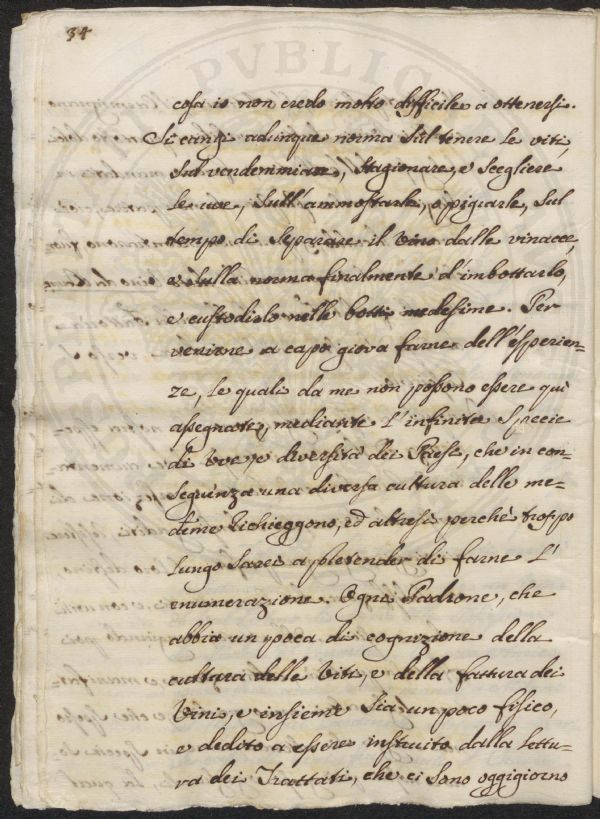 34
cosa io non credo molto difficile a ottenersi.
Si cangi adunque norma sul tenere le viti,
sul vendemmiare, stagionare, e scegliere
le uve, sull'ammostarle, o pigiarle, sul
tempo di separare il vino dalle vinacce,
e sulla norma finalmente d'imbottarlo,
e custodirlo nelle botti medesime. Per
venirne a capo giova farne dell'esperien=
ze, le quali da me non possono essere qui
assegnate, mediante l'infinita specie
di uve, e diversità dei Paesi, che in con=
seguenza una diversa cultura delle me=
dime richieggono, ed altresì perchè troppo
lungo sarei a pretender di farne l'
enumerazione. Ogni Padrone, che
abbia un poca di cognizione della
cultura delle viti, e della fattura dei
vini, e insieme sia un poco fisico,
e dedito a essere instruito dalla lettu=
ra dei Trattati, che ci sono oggigiorno